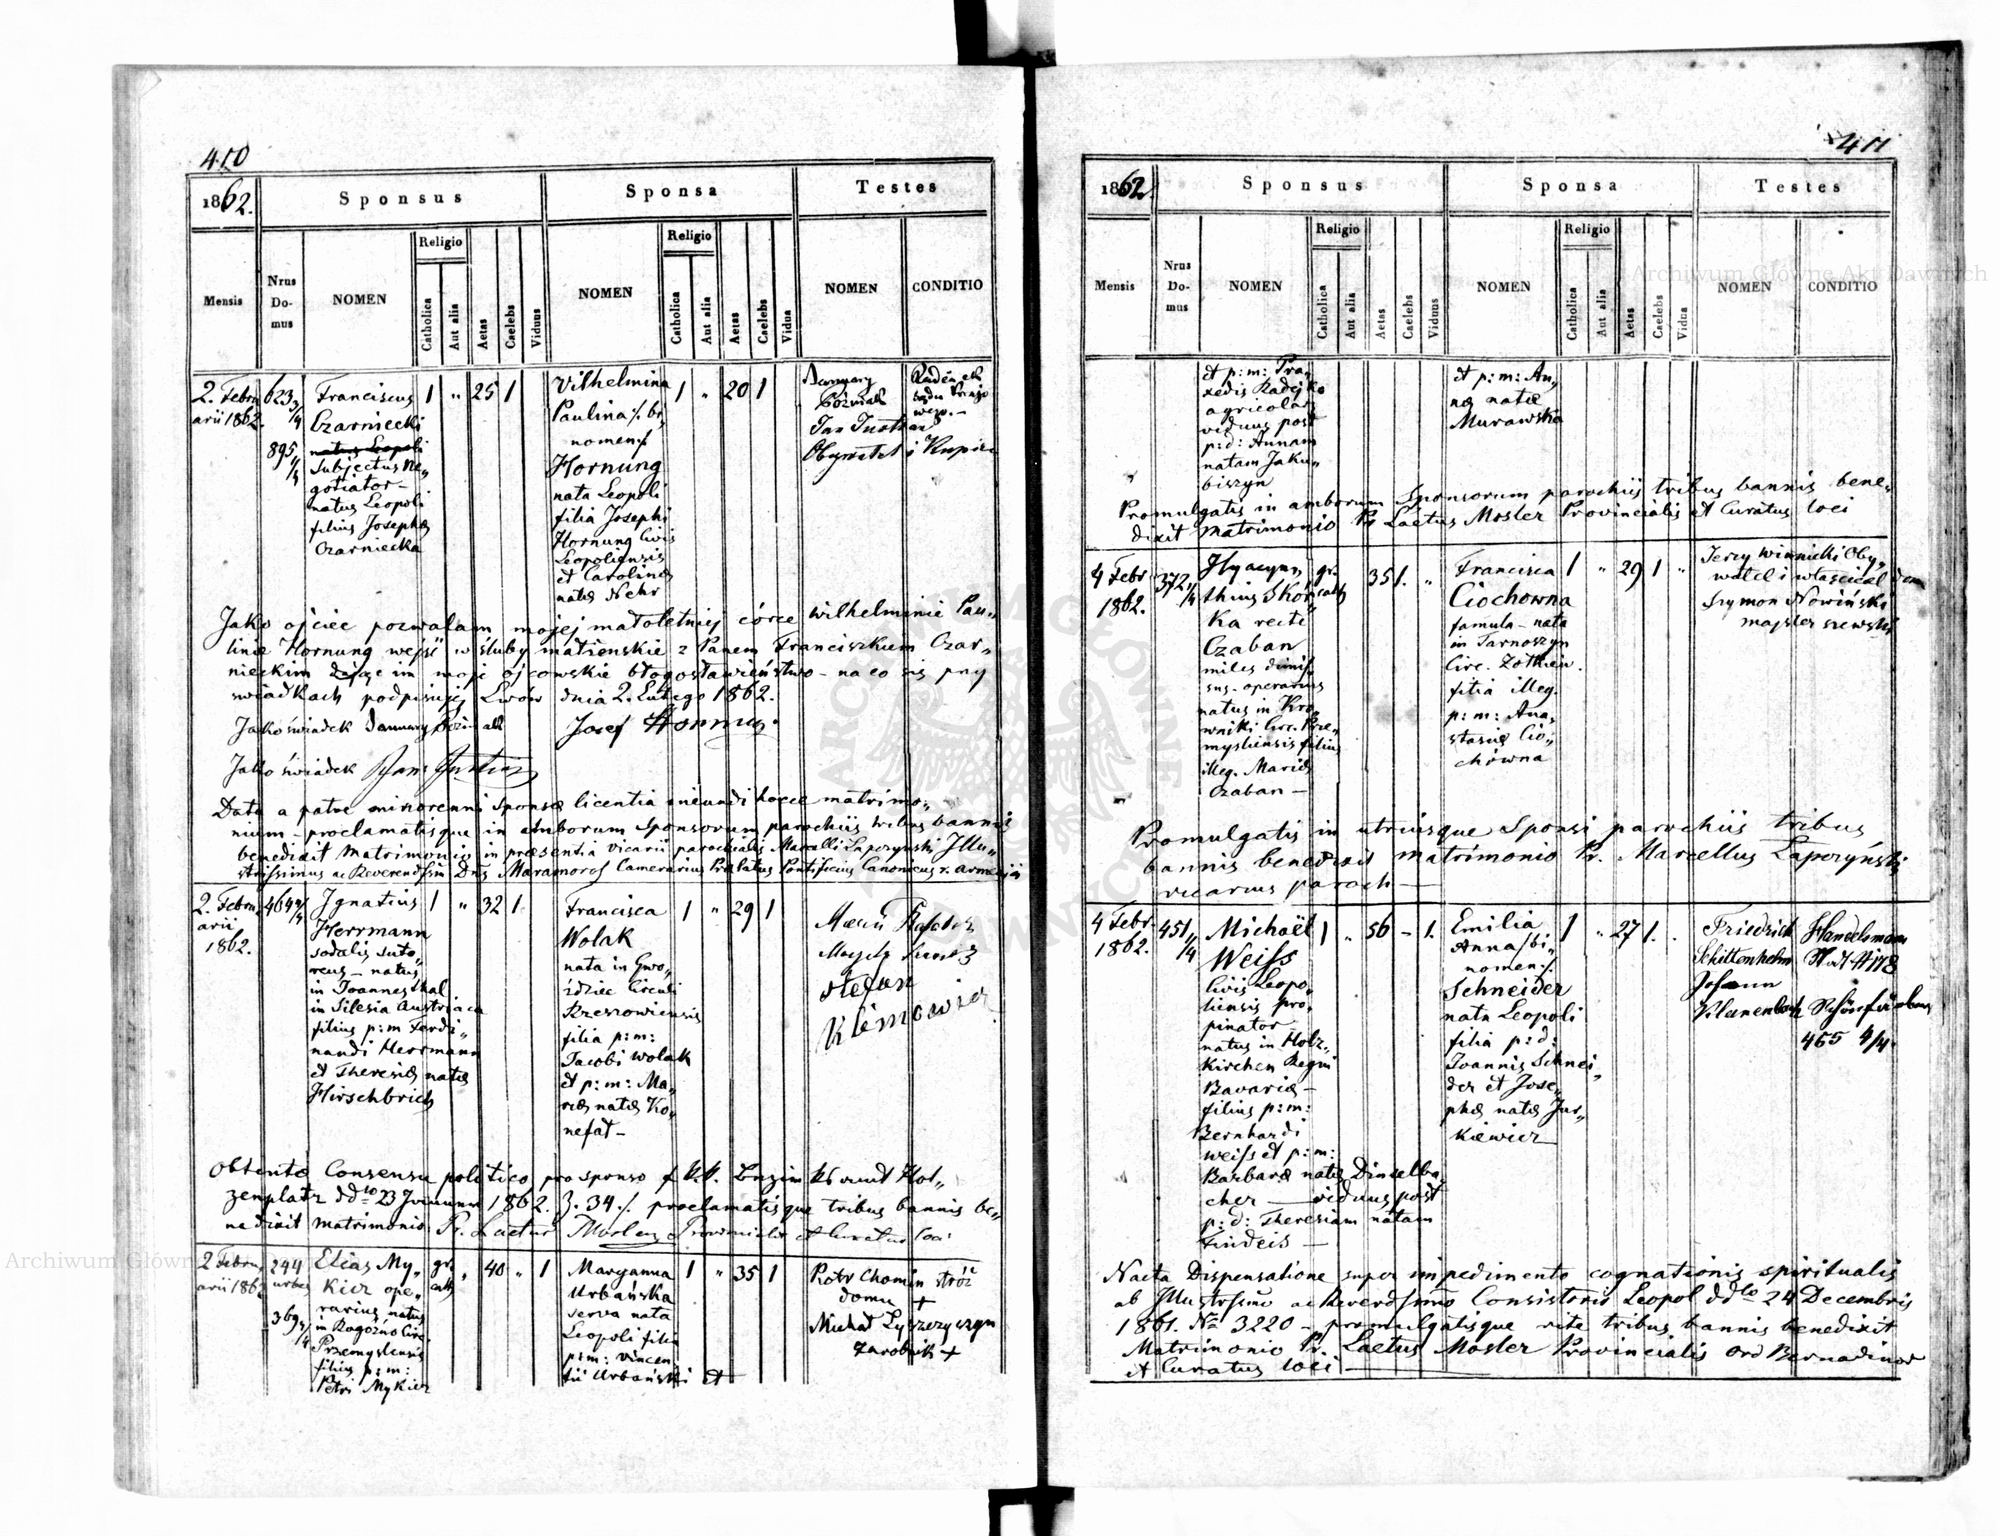 410
1862.
Sponsus
Sponsa
Testes
Mensis
Nrus Domus
NOMEN
Religio
Catholica
Aut alia
Aetas
Caelebs
Viduus
NOMEN
Religio
Catholica
Aut alia
Aetas
Caelebs
Vidua
NOMEN
CONDITIO
2. Febru
arii 1862.
623 3/4
895 1/4
Franciscus
Czarniecki
natus Leopoli
Subjectus Ne„
gotiator –
natus Leopoli
filius Josephæ
Czarniecka
1 „ 25 1
Vilhelmina
Paulina /. bi
nomen /.
Hornung
nata Leopoli
filia Josephi
Hornung Civis
Leopoliensis
et Carolinæ
natæ Nehr
1 „ 20 1
January
Jan
Obywatel i Kupiec
Jako ojciec pozwalam mojej małoletniej córce Wilhelminie Pau„
linie Hornung wejść w śluby małżenskie z Panem Franciszkiem Czar„
nieckim daję im moje ojcowskie błogosławieństwo – na co się przy
świadkach podpisuję Lwów dnia 2. Lutego 1862.
Jako świadek January
Josef Hornung
Jako świadek Jan
Data a patre minorennis Sponsæ licentia ineundi hocce matrimo„
nium – proclamatisque in amborum Sponsorum parochiis tribus bannis
benedixit Matrimonio in præsentia Vicarii parochialis Marcelli Łapczyński Illu„
strissimus ac Reverendissim Dns Maramorosz Camerarius Prælatus Pontificius Canonicus r. armenii
2. Febru
arii
1862.
464 2/4
Ignatius
Herrmann
sodalis suto„
reus – natus
in Joannesthal
in Silesia Austriaca
filius p: m Ferdi„
nandi Herrmann
et Theresiæ natæ
Hirschbrich
1 „ 32 1.
Francisca
Wolak
nata in Gwo„
ździec Circuli
Rzeszowiensis
filia p: m:
Jacobi Wolak
et p: m: Ma„
riæ natæ Ko„
nefat –
1 „ 29 1
Stefan
Klimowicz
Obtento Consensu politico pro sponso f. K. K. Bezirksamt Hot„
zenplatz ddto 23 Januar 1862. Z. 34 ./. proclamatisque tribus bannis be„
nedixit Matrimonio Pr. Laetus Mosler Provincialis et Curatus loci
2 Febru
arii 1862
244
urbis
369 3/4
Elias My„
kicz ope„
rarius natus
in Rogóźno Circ.
Przemyslensis
filius p: m:
Petri Mykicz
gr.
cath
„ 40 „ 1
Maryanna
Urbańska
serva nata
Leopoli filia
p: m: Vincen
tii Urbański et
1 „ 35 1
Piotr Chomin stróż
domu +
Michał
zarobnik +
411
1862.
Sponsus
Sponsa
Testes
Mensis
Nrus Domus
NOMEN
Religio
Catholica
Aut alia
Aetas
Caelebs
Viduus
NOMEN
Religio
Catholica
Aut alia
Aetas
Caelebs
Vidua
NOMEN
CONDITIO
et p: m: Pra„
xedis Radejko
agricolar
viduus post
p: d: Annam
natam Jaku„
biszyn
et p: m: An„
næ natæ
Murawska
Promulgatis in amborum Sponsorum parochiis tribus bannis bene„
dixit Matrimonio Pr Laetus Mosler Provincialis et Curatus loci
4 Febr.
1862.
372 1/4
Hyacyn„
thius Skór„
ka recte
Czaban
miles dimis„
sus – operarius
natus in Kro„
wniki Circ. Prze„
mysliensis filius
illeg. Mariæ
Czaban –
gr.
cath
35 1. „
Francisca
Ciochowna
famula – nata
in Tarnoszyn
Circ. Zolkiew.
filia illeg.
p: m: Ana„
stasiæ Cio„
chówna
1 „ 29 1 „
Jerzy Winnicki Oby„
watel i właściciel dom
Szymon Nowiński
majster szewski
Promulgatis in utriusque Sponsi parochiis tribus
bannis benedixit matrimonio Pr. Marcellus Łapczyński
vicarius paroch –
4 Febr.
1862.
451 1/4
Michaël
Weiss
Civis Leopo„
liensis pro„
pinator
natus in Holz„
kirchen Regni
Bavariæ –
filius p: m:
Bernhardi
Weiss et p: m:
Barbaræ natæ Dinzelba„
cher – viduus post
p: d: Theresiam natam
Findeis –
1 „ 56 – 1.
Emilia
Anna /. bi„
nomen /.
Schneider
nata Leopoli
filia p: d:
Joannis Schnei„
der et Jose„
phæ natæ Jur„
kiewicz
1 „ 27 1. .
Friedrich
Schittenhelm
Johann
Handelsmann
Stadt # 178
Schönfärber
455 4/4.
Nacta Dispensatione super impedimento cognationis spiritualis
ab Illustrissimo ac Reverendissimo Consistorio Leopol ddto 24 Decembris
1861. Nr. 3220 – promulgatisque rite tribus bannis benedixit
Matrimonio Pr. Laetus Mosler Provincialis Ord Bernadinor
et Curatus loci –
Archiwum Główne Akt Dawnych
Archiwum Główne Akt Dawnych
ARCHIWUM GŁÓWNE AKT DAWNYCH